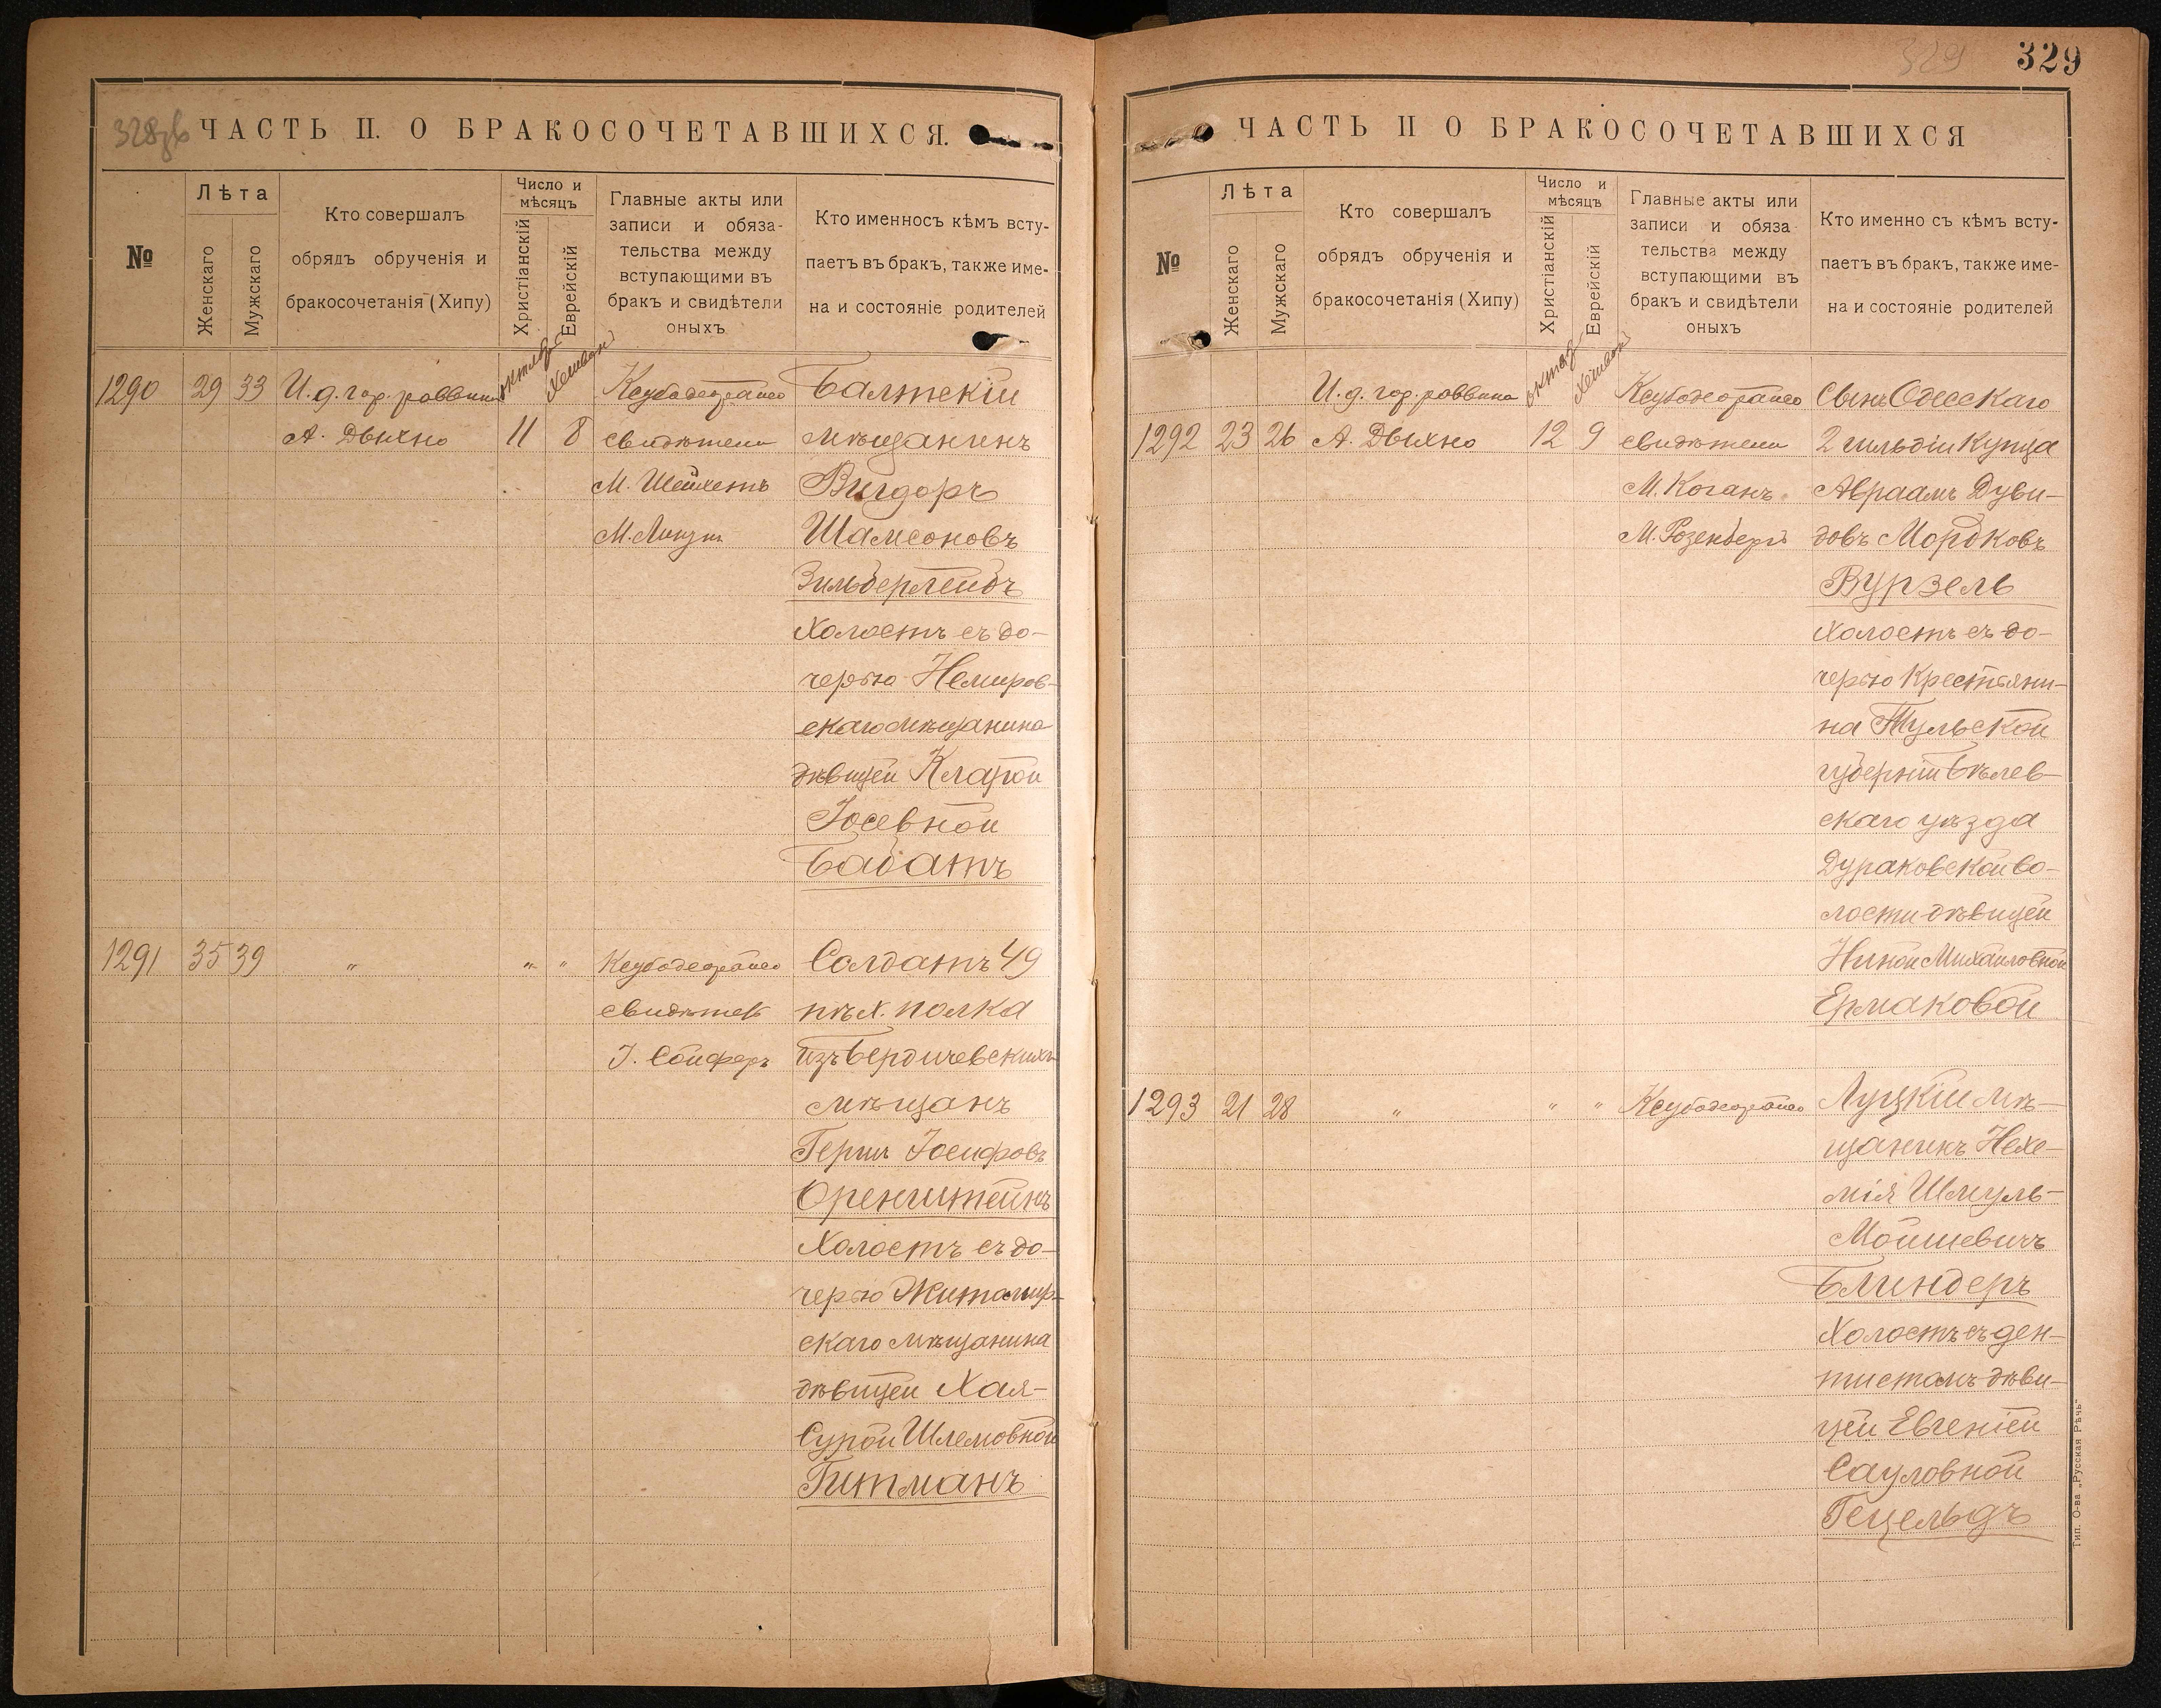 329
329
ЧАСТЬ II. О БРАКОСОЧЕТАВШИХСЯ.
№
Лѣта
Женскаго
Мужскаго
Кто совершалъ
обрядъ обрученія и
бракосочетанія (Хипу)
Число и
мѣсяцъ
Христіанскій
Еврейскій
Главные акты или
записи и обяза-
тельства между
вступающими въ
бракъ и свидѣтели
оныхъ
Кто именносъ кѣмъ всту-
паетъ въ бракъ, также име-
на и состояніе родителей
1290 29 33 И.д. гор. раввина
А. Дыхно
октяб
Хешван
11 8
Ксубодеорайсо
свидѣтели
М. Шейхетъ
Балтскій
мѣщанинъ
Вигдоръ
Шамсоновъ
Зильберлейбъ
Холостъ съ до-
черью Немиров-
скаго мѣщанина
дѣвицей Кларой
Іосевной
Бабатъ
1291 35 39 " " "
Ксубодеорайсо
свидѣтель
І. Сойферъ
Солдатъ 49
пѣх. полка
изъ Бердичевскихъ
мѣщанъ
Герш Іосифовъ
Оренштейнъ
Холостъ съ до-
черью Житомир-
скаго мѣщанина
дѣвицей Хая-
Сурой Шлемовной
Гитманъ
ЧАСТЬ II О БРАКОСОЧЕТАВШИХСЯ
№
Лѣта
Женскаго
Мужскаго
Кто совершалъ
обрядъ обрученія и
бракосочетанія (Хипу)
Число и
мѣсяцъ
Христіанскій
Еврейскій
Главные акты или
записи и обяза
тельства между
вступающими въ
бракъ и свидѣтели
оныхъ
Кто именно съ кѣмъ всту-
паетъ въ бракъ, также име-
на и состояніе родителей
И.д. гор. раввина
1292 23 26 А. Дыхно
октяб
Хешван
12 9
Ксубодеорайсо
свидѣтели
М. Коганъ
М. Розенбергъ
Сынъ Одесскаго
2 гильдіи Купца
Авраамъ Дуви-
довъ Мордковъ
Вурзель
Холостъ съ до-
черью Крестьяни-
на Тульской
губерніи Бѣлев-
скаго уѣзда
Дураковской во-
лости дѣвицей
Ниной Михаиловной
Ермаковой
1293 21 28 " " "
Ксубодеорайсо
Луцкій мѣ-
щанинъ Нехе-
мія Шмуль-
Мойшевичъ
Блиндеръ
Холостъ съ ден-
тистомъ дѣви-
цей Евгеніей
Сауловной
Гецельдъ
Тип. О-ва „Русская Рѣчь"